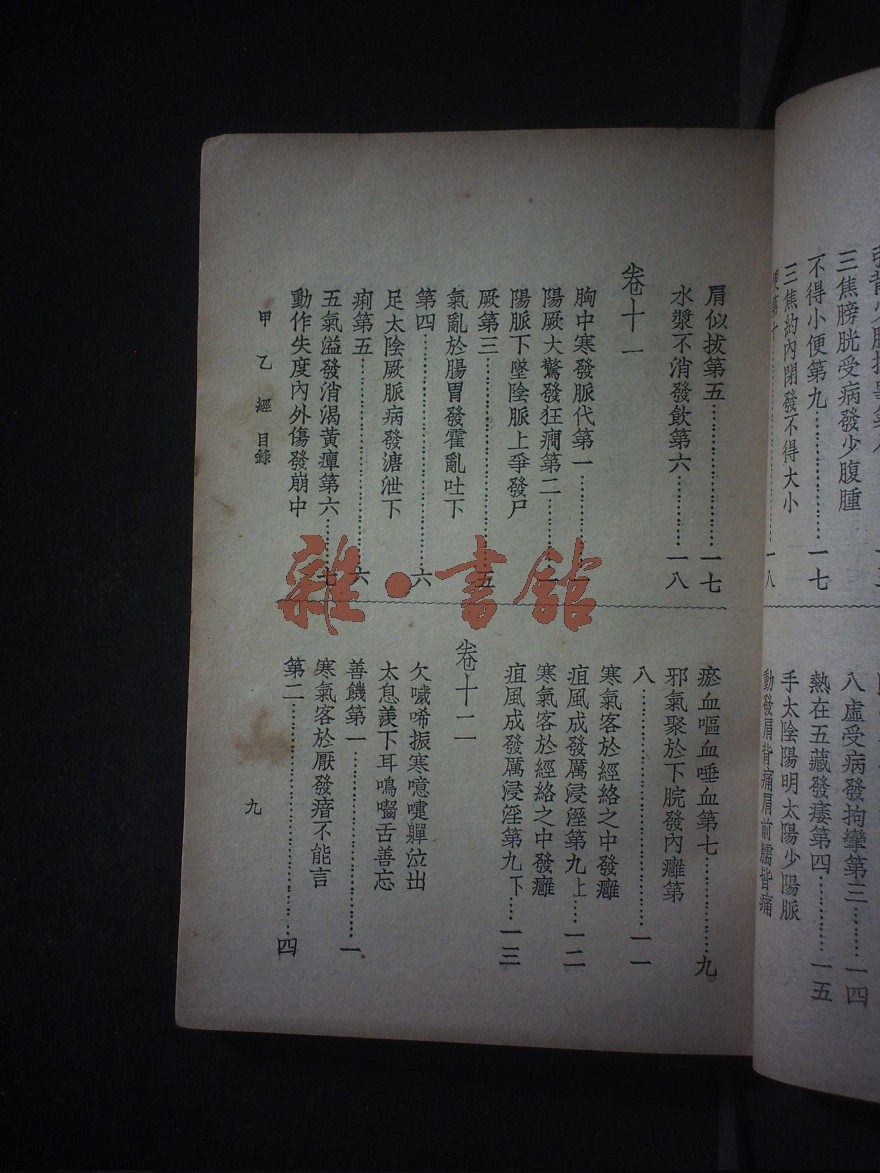 三焦膀胱受病發少腹腫
不得小便第九……一七
三焦約內閉發不得大小
便第十……一八
八虛受病發拘攣第三……一四
熱在五藏發痿第四……一五
手太陰陽明太陽少陽脈
動發肩背痛肩前臑皆痛
肩似拔第五……一七
水漿不消發飲第六……一八
卷十一
胸中寒發脈代第一
陽厥大驚發狂癎第二
陽脈下墜陰脈上爭發尸
厥第三……五
氣亂於腸胃發霍亂吐下
第四……六
足太陰厥脈病發溏泄下
痢第五……六
五氣溢發消渴黃癉第六……七
動作失度內外傷發崩中
瘀血嘔血唾血第七……九
邪氣聚於下脘發內癰第
八……一一
寒氣客於經絡之中發癰
疽風成發厲浸淫第九上……一二
寒氣客於經絡之中發癰
疽風成發厲浸淫第九下……一三
卷十二
欠噦唏振寒噫嚏嚲泣出
太息羨下耳鳴嚙舌善忘
善饑第一……一
寒氣客於厭發瘖不能言
第二……四
甲乙經 目錄
九
雜·書館